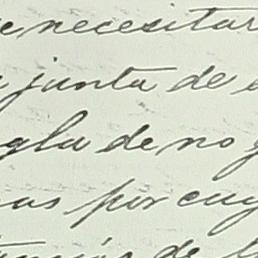 e necesitar
junta de
gla de no
as por cuy
de